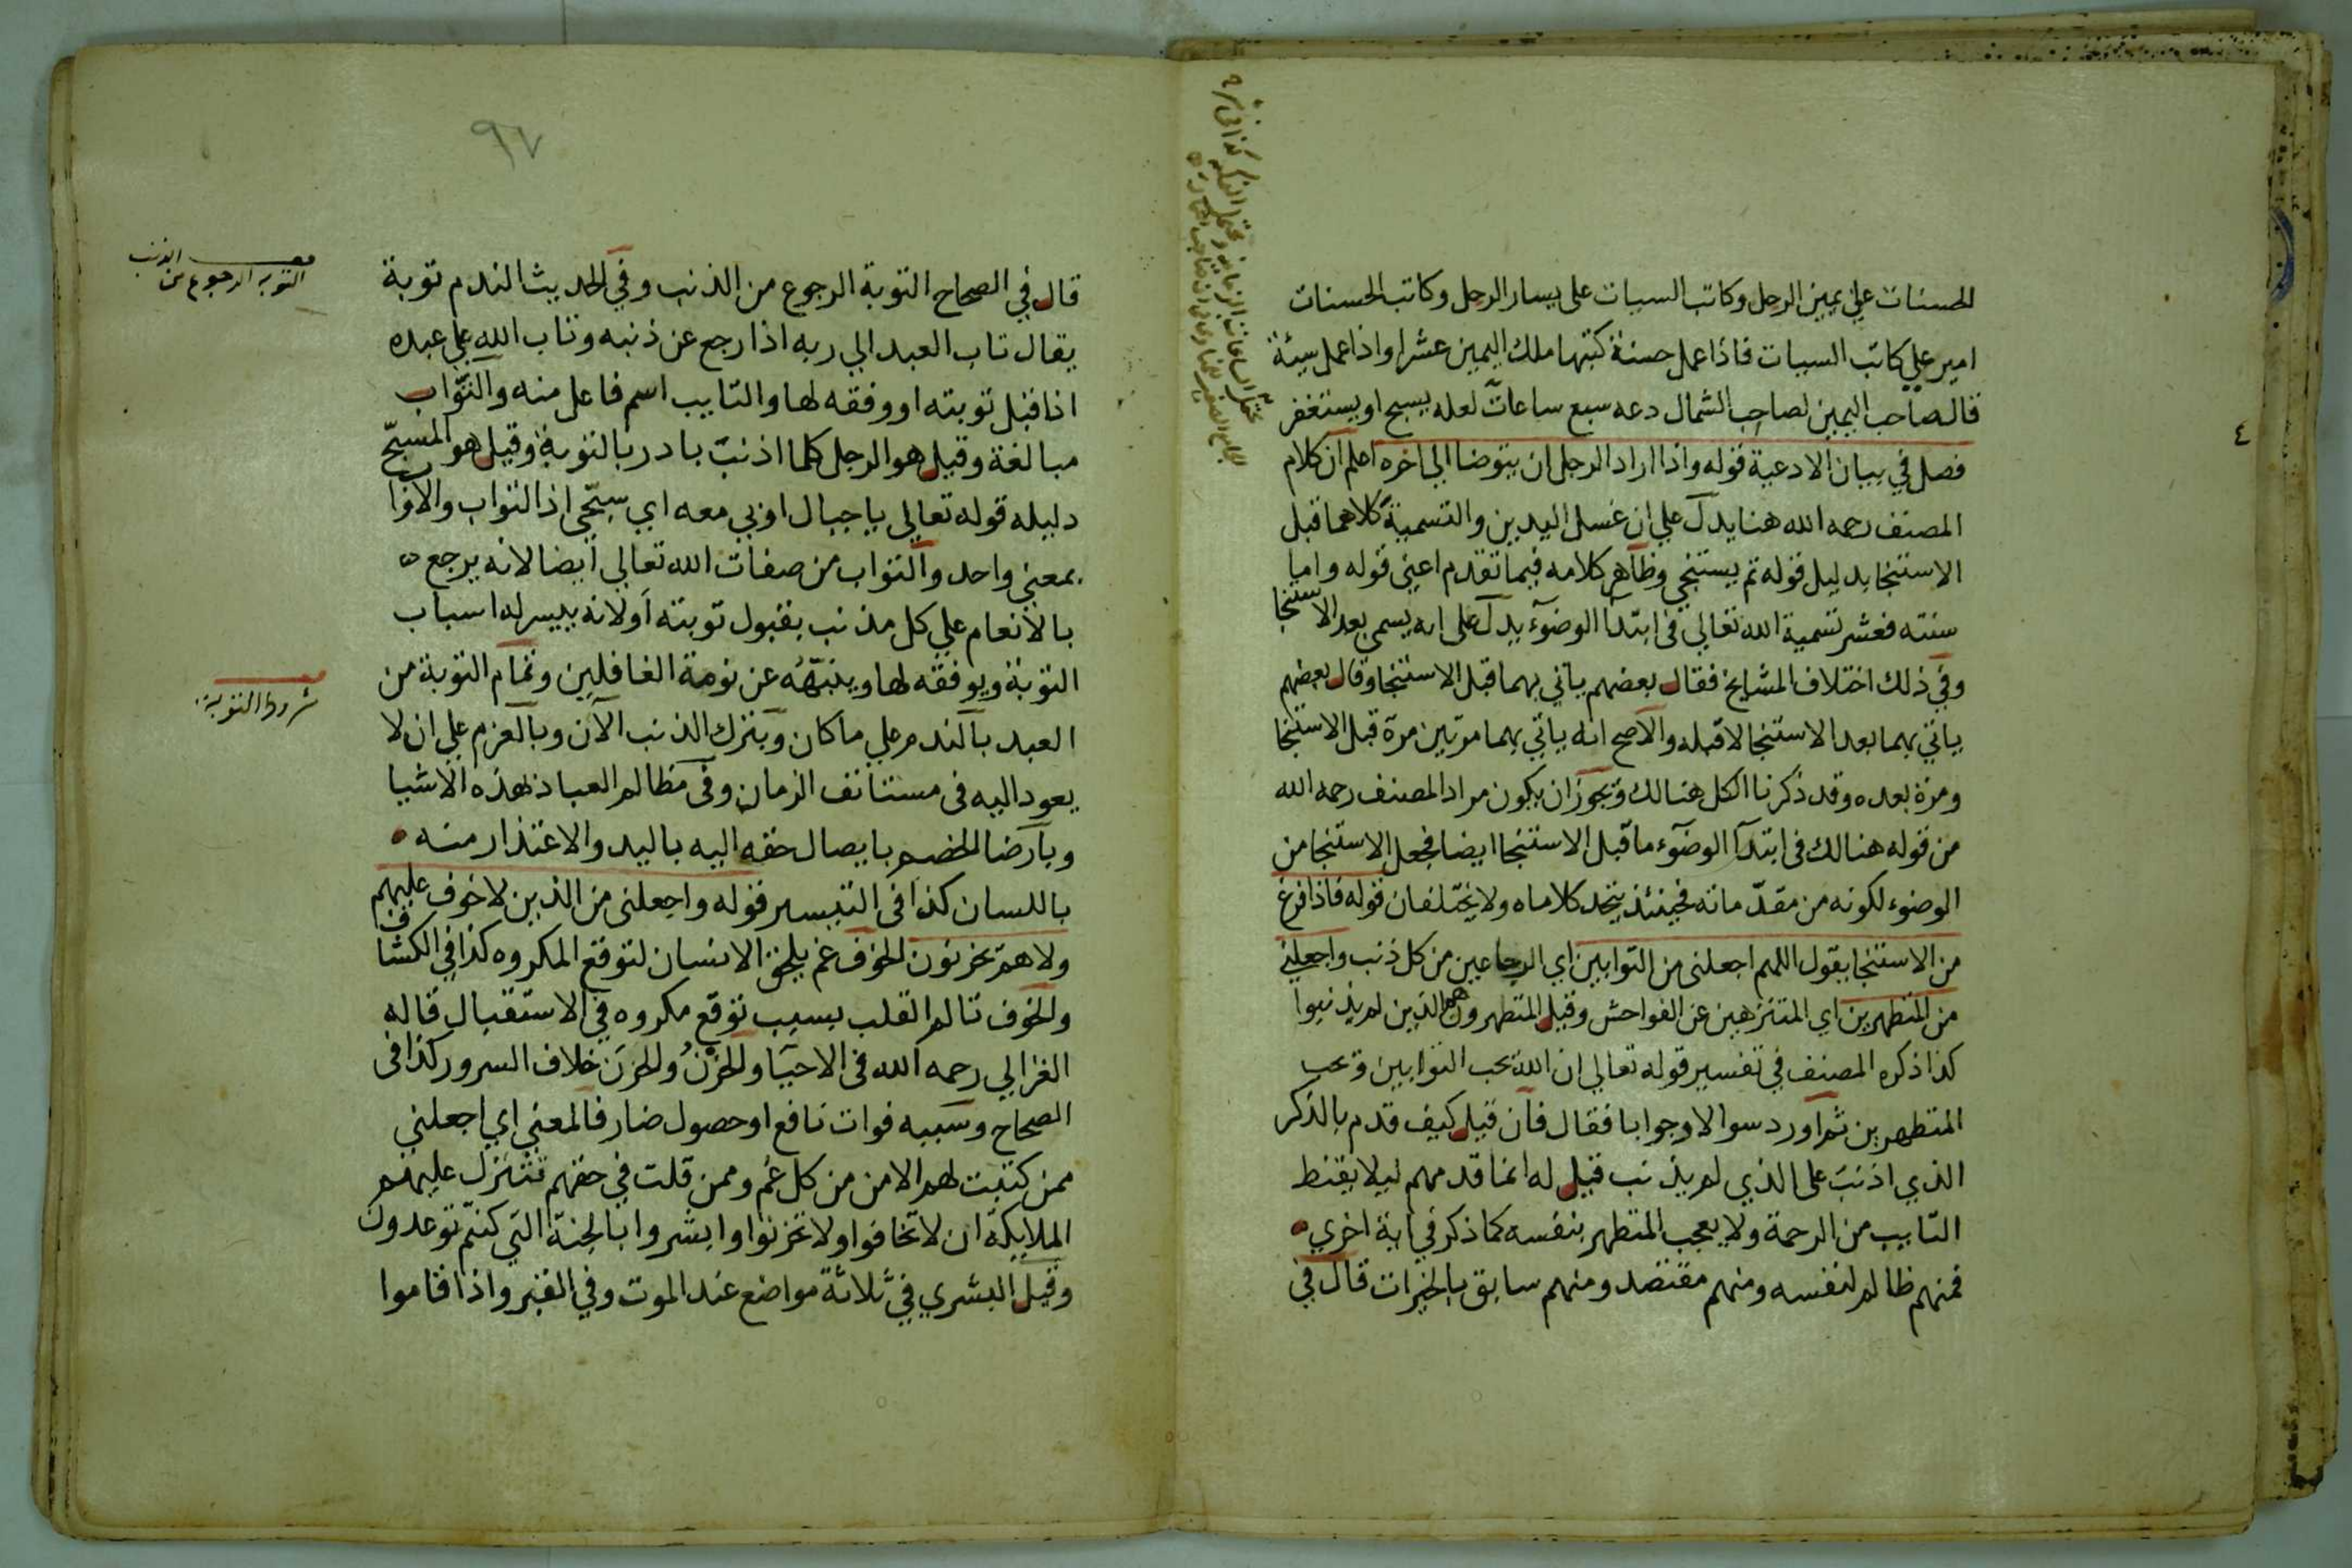 الحسنات علي يمين الرجل وكاتب السيات على يسار الرجل وكاتب الحسنات
امير علي كاتب السيات فاذا عمل حسنة كتبها ملك اليمين عشرا واذا عمل سيئة
قال صاحب اليمين لصاحب الشمال دعه سبع ساعات لعله يسبح او يستغفر
فصل في بيان الادعية قوله واذا اراد الرجل ان يتوضا الي اخره اعلم ان كلام
المصنف رحمه الله هنا يدل علي ان غسل اليدين والتسمية كلاهما قبل
الاستنجا بدليل قوله ثم يستنجي وظاهر كلامه فيما تقدم اعني قوله واما
سنته فعشر تسمية الله تعالي في ابتدا الوضوء يدل على انه يسمي بعد الاستنجا
وفي ذلك اختلاف المشايخ فقال بعضهم ياتي بهما قبل الاستنجا وقال بعضهم
ياتي بهما بعد الاستنجا لا قبله والاصح انه ياتي بهما مرتين مرة قبل الاستنجا
ومرة بعده وقد ذكرنا الكل هنالك ويجوز ان يكون مراد المصنف رحمه الله
من قوله هنالك في ابتدا الوضوء ما قبل الاستنجا ايضا فجعل الاستنجا من
الوضوء لكونه من مقدماته فحينئذ يتحد كلاماه ولا يختلفان قوله فاذا فرغ
من الاستنجا يقول اللهم اجعلني من التوابين اي الرجاعين من كل ذنب واجعلني
من المتطهرين اي المتنزهين عن الفواحش وقيل المتطهرون هم الذين لم يذنبوا
كذا ذكره المصنف في تفسير قوله تعالي ان الله يحب التوابين ويحب
المتطهرين ثم اورد سوالا وجوابا فقال فان قيل كيف قدم بالذكر
الذي اذنب على الذي لم يذنب قيل له انما قدمهم ليلا يقنط
التايب من الرحمة ولا يعجب المتطهر بنفسه كما ذكر في اية اخري
فمنهم ظالم لنفسه ومنهم مقتصد ومنهم سابق بالخيرات قال في
٤
٩٧
قال في الصحاح التوبة الرجوع من الذنب وفي الحديث الندم توبة
يقال تاب العبد الي ربه اذا رجع عن ذنبه وتاب الله علي عبده
اذا قبل توبته او وفقه لها والتايب اسم فاعل منه والتواب
مبالغة وقيل هو الرجل كلما اذنب بادر بالتوبة وقيل هو المسبح
دليله قوله تعالي يا جبال اوبي معه اي سبحي اذ التواب والاواب
بمعني واحد والتواب من صفات الله تعالي ايضا لانه يرجع
بالانعام علي كل مذنب بقبول توبته او لانه ييسر له اسباب
التوبة ويوفقه لها وينبهه عن نومة الغافلين وتمام التوبة من
العبد بالندم علي ما كان وبترك الذنب الآن وبالعزم علي ان لا
يعود اليه في مستانف الزمان وفي مظالم العباد بهذه الاشيا
وبارضا الخصم بايصال حقه اليه باليد والاعتذار منه
باللسان كذا في التيسير قوله واجعلني من الذين لا خوف عليهم
ولا هم يحزنون الخوف غم يلحق الانسان لتوقع المكروه كذا في الكشاف
والخوف تالم القلب بسبب توقع مكروه في الاستقبال قاله
الغزالي رحمه الله في الاحيا والحزن والحزن خلاف السرور كذا في
الصحاح وسببه فوات نافع او حصول ضار فالمعني اي اجعلني
ممن كتبت لهم الامن من كل غم وممن قلت في حقهم تتنزل عليهم
الملايكة ان لا تخافوا ولا تحزنوا وابشروا بالجنة التي كنتم توعدون
وقيل البشري في ثلاثة مواضع عند الموت وفي القبر واذا قاموا
التوبة الرجوع من الذنب
شروط التوبة